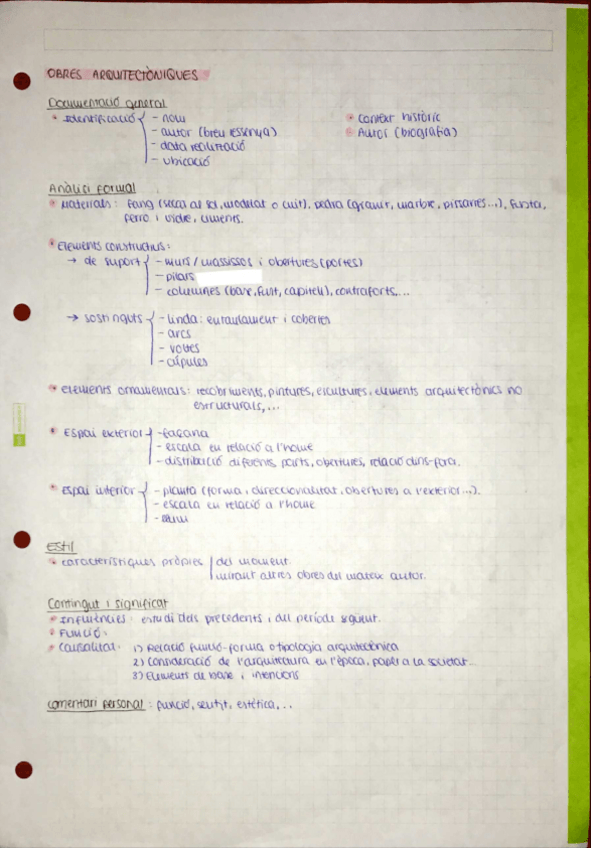 OBRES ARQUITECTÒNIQUES
Documentació general
• Identificació - nom
- autor (breu ressenya)
- data realització
- ubicació
• Context històric
• Autor (biografia)
Anàlisi formal
• Materials: fang (secat al sol, modelat o cuit), pedra (granit, marbre, pissarres...), fusta,
ferro i vidre, ciments.
• Elements constructius:
→ de suport - murs / massissos i obertures (portes)
- pilars
- columnes (base, fust, capitell), contraforts,...
→ sostinguts - linda: entaulament i cobertes
- arcs
- voltes
- cúpules
• elements ornamentals: recobriments, pintures, escultures, elements arquitectònics no
estructurals,...
• Espai exterior - façana
- escala en relació a l'home
- distribució diferents parts, obertures, relació dins-fora.
• espai interior - planta (forma, direccionalitat, obertures a l'exterior...).
- escala en relació a l'home
- llum
Estil
• característiques pròpies del moment
mirant altres obres del mateix autor.
Contingut i significat
• Influències: estudi dels precedents i del període següent.
• Funció:
• Causalitat: 1) Relació funció-forma o tipologia arquitectònica
2) Consideració de l'arquitectura en l'època, paper a la societat...
3) Elements de base i intencions
comentari personal: funció, sentit, estètica,...